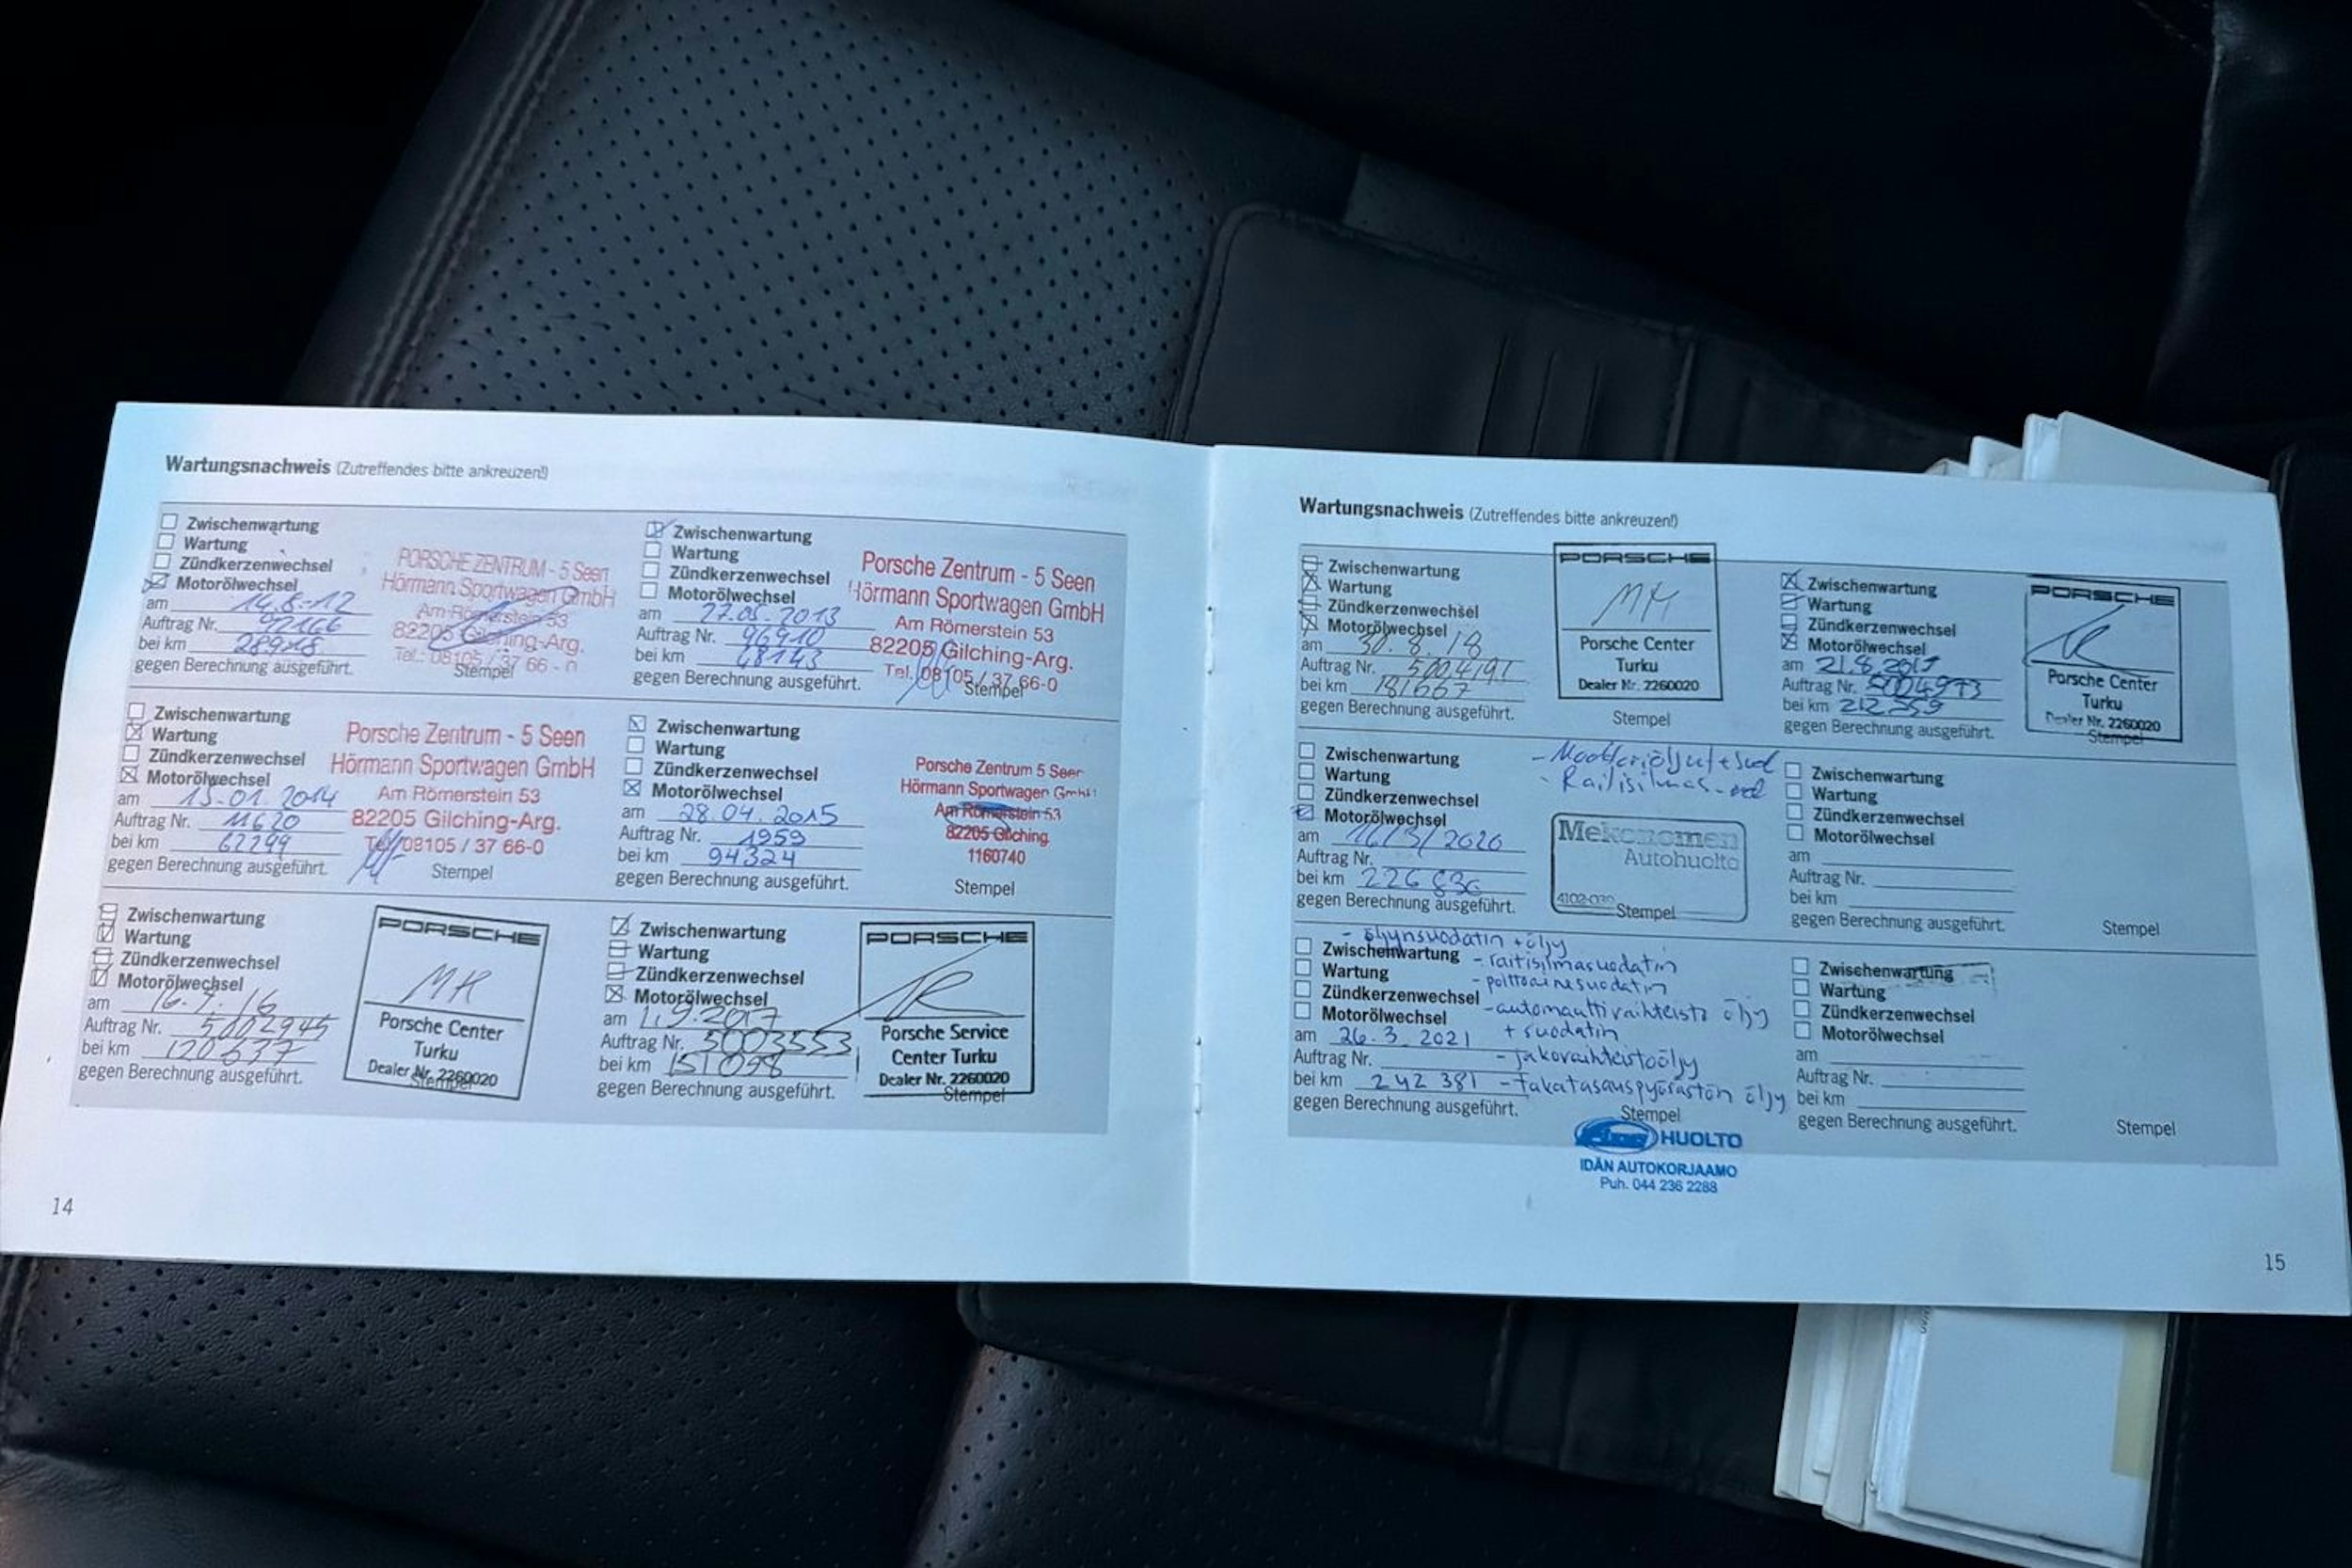 Wartungsnachweis (Zutreffendes bitte ankreuzen!)
Zwischenwartung
Wartung
Zündkerzenwechsel
Motorölwechsel
am 14.8.12
Auftrag Nr. 92166
bei km 28918
gegen Berechnung ausgeführt.
PORSCHE ZENTRUM - 5 Seen
Hörmann Sportwagen GmbH
Am Römerstein 53
82205 Gilching-Arg.
Tel.: 08105 / 37 66 - 0
Stempel
Zwischenwartung
Wartung
Zündkerzenwechsel
Motorölwechsel
am 27.05.2013
Auftrag Nr. 96910
bei km 48143
gegen Berechnung ausgeführt.
Porsche Zentrum - 5 Seen
Hörmann Sportwagen GmbH
Am Römerstein 53
82205 Gilching-Arg.
Tel. 08105 / 37 66-0
Stempel
Zwischenwartung
Wartung
Zündkerzenwechsel
Motorölwechsel
am 15.01.2014
Auftrag Nr. 11620
bei km 62299
gegen Berechnung ausgeführt.
Porsche Zentrum - 5 Seen
Hörmann Sportwagen GmbH
Am Römerstein 53
82205 Gilching-Arg.
Tel. 08105 / 37 66-0
Stempel
Zwischenwartung
Wartung
Zündkerzenwechsel
Motorölwechsel
am 28.04.2015
Auftrag Nr. 1959
bei km 94324
gegen Berechnung ausgeführt.
Porsche Zentrum 5 Seen
Hörmann Sportwagen GmbH
Am Römerstein 53
82205 Gilching
1160740
Stempel
Zwischenwartung
Wartung
Zündkerzenwechsel
Motorölwechsel
am 16.7.16
Auftrag Nr. 5002945
bei km 120637
gegen Berechnung ausgeführt.
PORSCHE
MK
Porsche Center
Turku
Dealer Nr. 2260020
Stempel
Zwischenwartung
Wartung
Zündkerzenwechsel
Motorölwechsel
am 1.9.2017
Auftrag Nr. 5003553
bei km 151098
gegen Berechnung ausgeführt.
PORSCHE
Porsche Service
Center Turku
Dealer Nr. 2260020
Stempel
14
Wartungsnachweis (Zutreffendes bitte ankreuzen!)
Zwischenwartung
Wartung
Zündkerzenwechsel
Motorölwechsel
am 30.8.18
Auftrag Nr. 5004191
bei km 181667
gegen Berechnung ausgeführt.
PORSCHE
MK
Porsche Center
Turku
Dealer Nr. 2260020
Stempel
Zwischenwartung
Wartung
Zündkerzenwechsel
Motorölwechsel
am 21.8.2019
Auftrag Nr. 5004973
bei km 212.559
gegen Berechnung ausgeführt.
PORSCHE
Porsche Center
Turku
Dealer Nr. 2260020
Stempel
Zwischenwartung
Wartung
Zündkerzenwechsel
Motorölwechsel
am 16/3/2020
Auftrag Nr.
bei km 226 836
gegen Berechnung ausgeführt.
- Moottoriöljyt+sud
- Raitisilmas-
Mekonomen
Autohuolto
Stempel
Zwischenwartung
Wartung
Zündkerzenwechsel
Motorölwechsel
am
Auftrag Nr.
bei km
gegen Berechnung ausgeführt.
Stempel
Zwischenwartung
Wartung
Zündkerzenwechsel
Motorölwechsel
am 26.3.2021
Auftrag Nr.
bei km 242 381
gegen Berechnung ausgeführt.
- öljynsuodatin + öljy
- raitisilmasuodatin
- polttoainesuodatin
- automaattivaihteisto öljy
+ suodatin
- jakovaihteistoöljy
- takatasauspyörästön öljy
Stempel
HUOLTO
IDÄN AUTOKORJAAMO
Puh. 044 236 2288
Zwischenwartung
Wartung
Zündkerzenwechsel
Motorölwechsel
am
Auftrag Nr.
bei km
gegen Berechnung ausgeführt.
Stempel
15